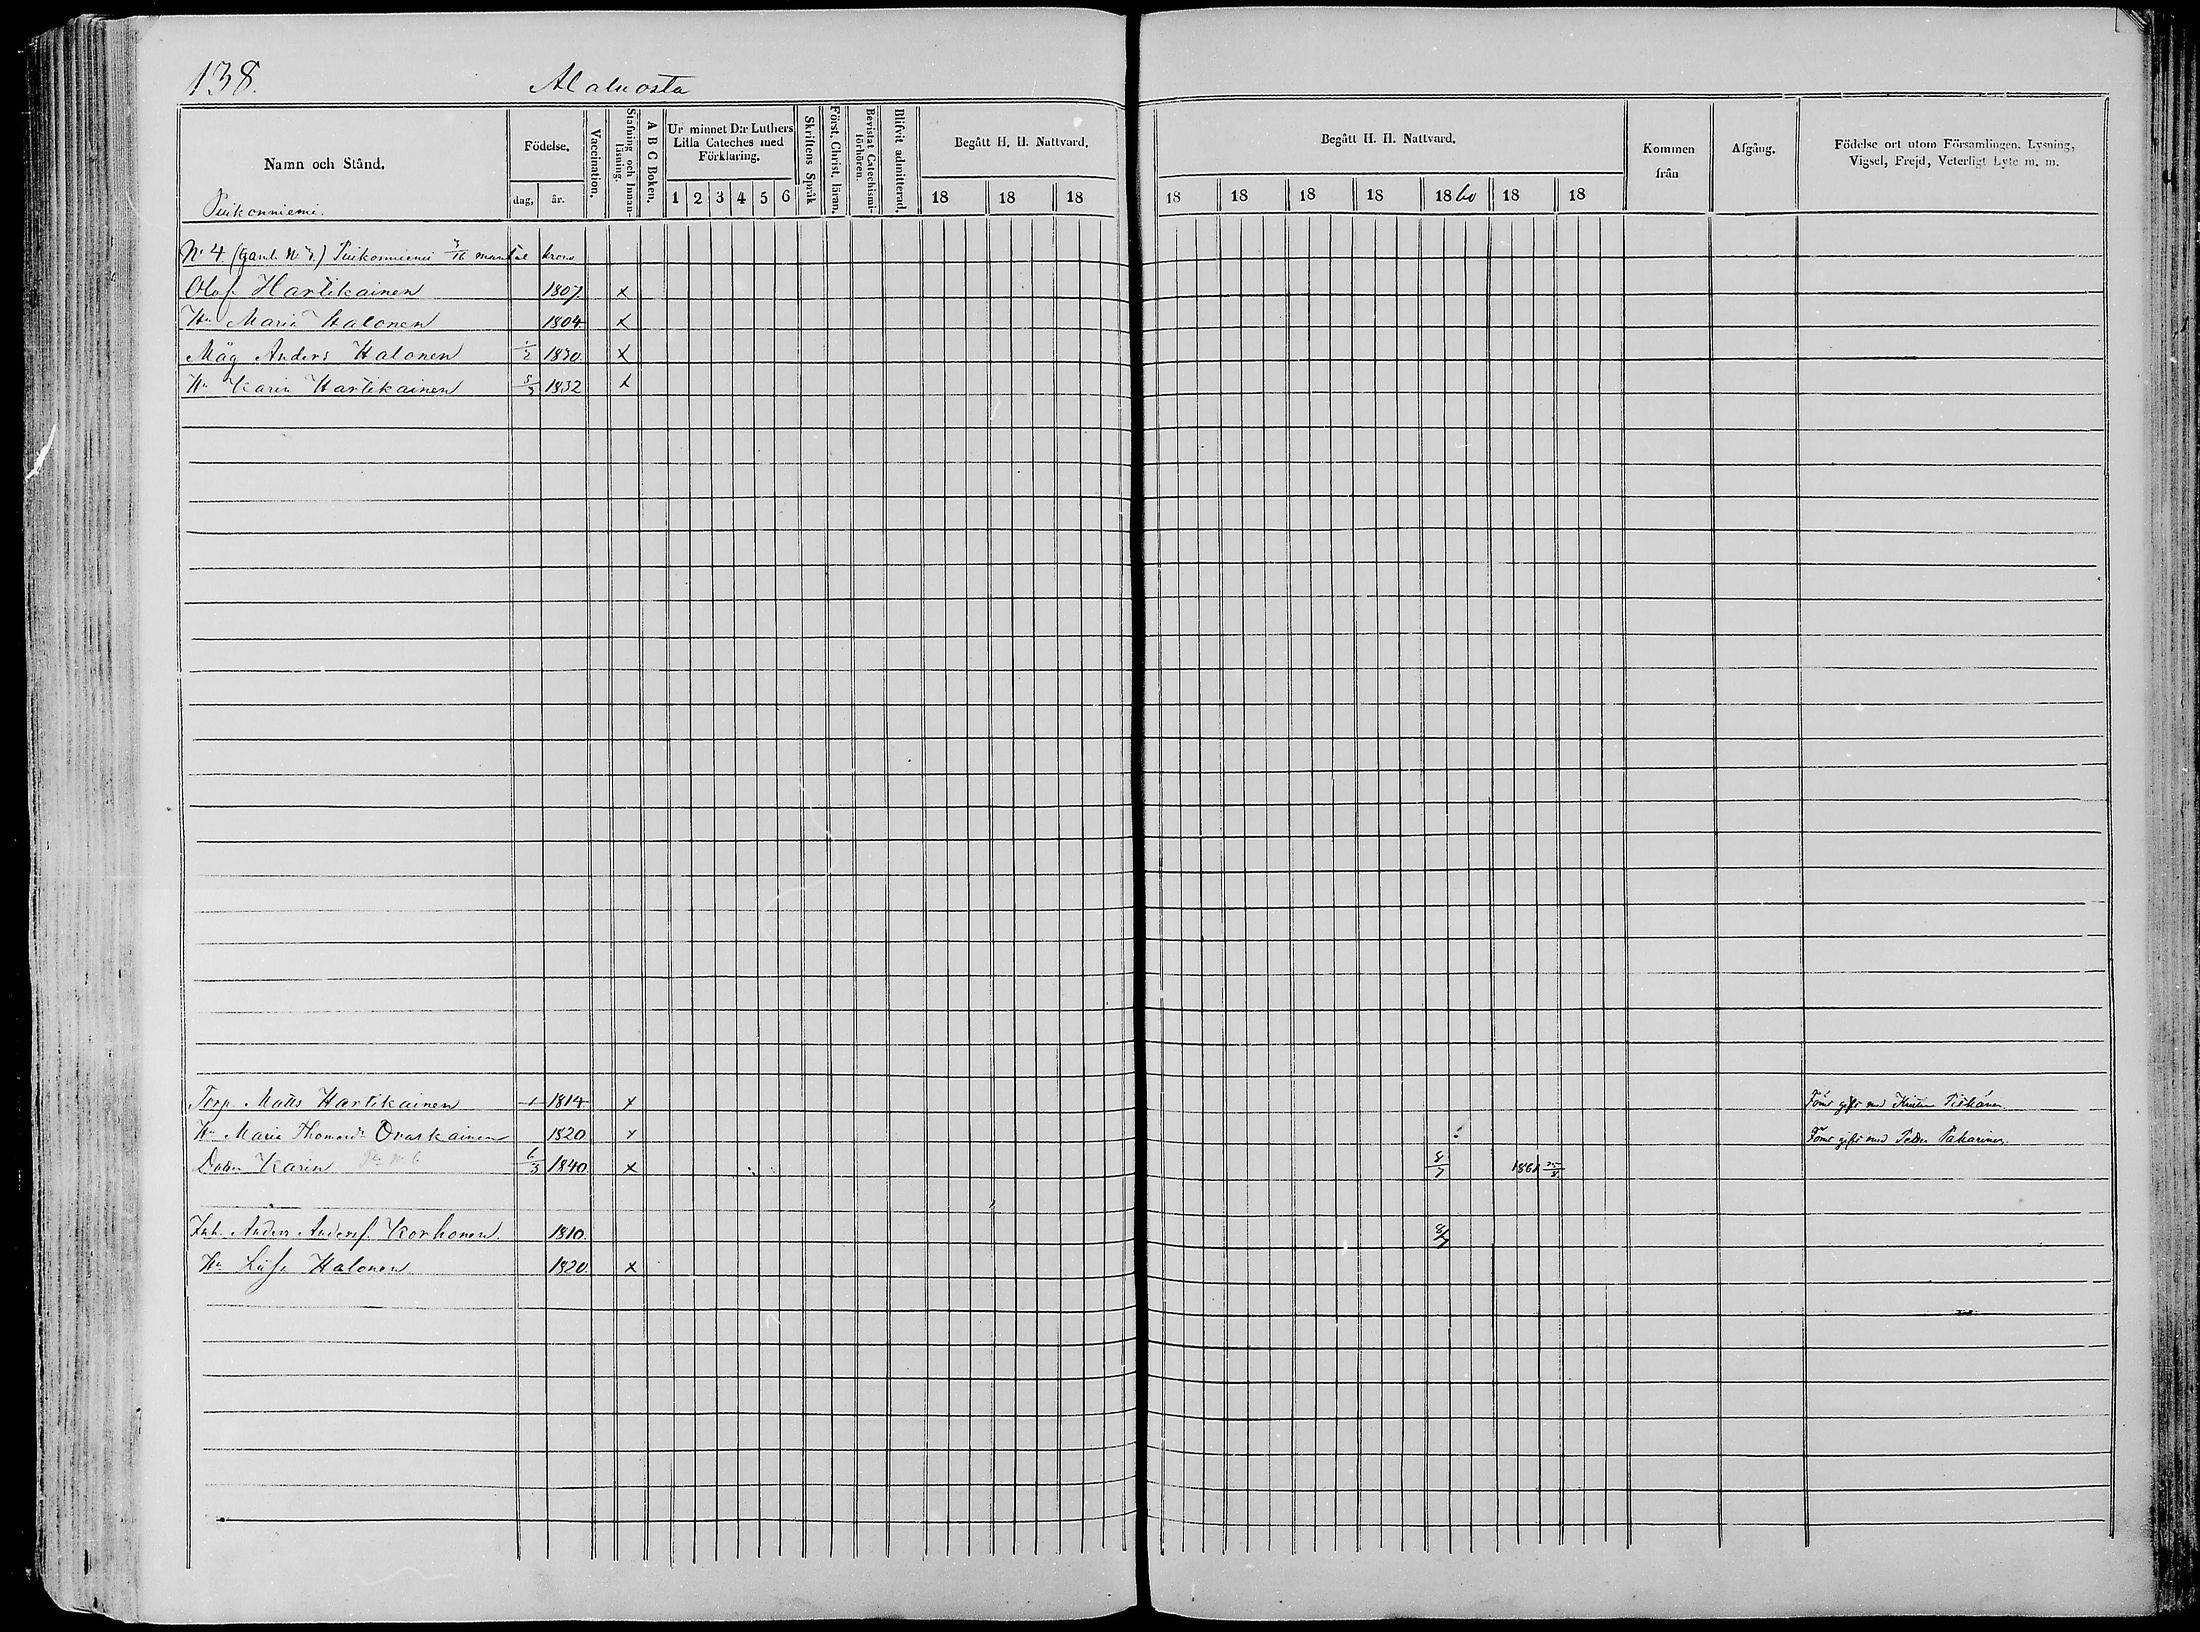 138.
Alaluosta
Namn och Stånd.
Födelse.
dag, år.
Vaccination.
Stafning och Innanläsning.
A B C Boken.
Ur minnet D:r Luthers Lilla Cateches med Förklaring.
1 2 3 4 5 6
Skriftens Språk
Först. Christ. läran.
Bevistat Catechismiförhören.
Blifvit admitterad.
Begått H. H. Nattvard.
18 18 18
Begått H. H. Nattvard.
18 18 18 18 1860 18 18
Kommen från
Afgång.
Födelse ort utom Församlingen. Lysning, Vigsel, Frejd, Veterligt Lyte m. m.
Puikonniemi.
N:o 4. (Gaml. N:o 7.) Puikonniemi 3/16 mantal krono
Olof Hartikainen 1807. x
Hu Maria Halonen 1804 x
Måg Anders Halonen 1/2 1830. x
Hu Karin Hartikainen 5/7 1832 x
Torp. Matts Hartikainen 1 1814 x Förut gift med Kristina
Hu Maria Thomasdr Oraskainen 1820 x Förut gift med Petter Pakarinen.
Dotter Karin 6/3 1840. x 8/7 1861 25/8
Inh. Anders Andersf. Korhonen. 1810. 8/7
Hu Lisa Halonen 1820 x